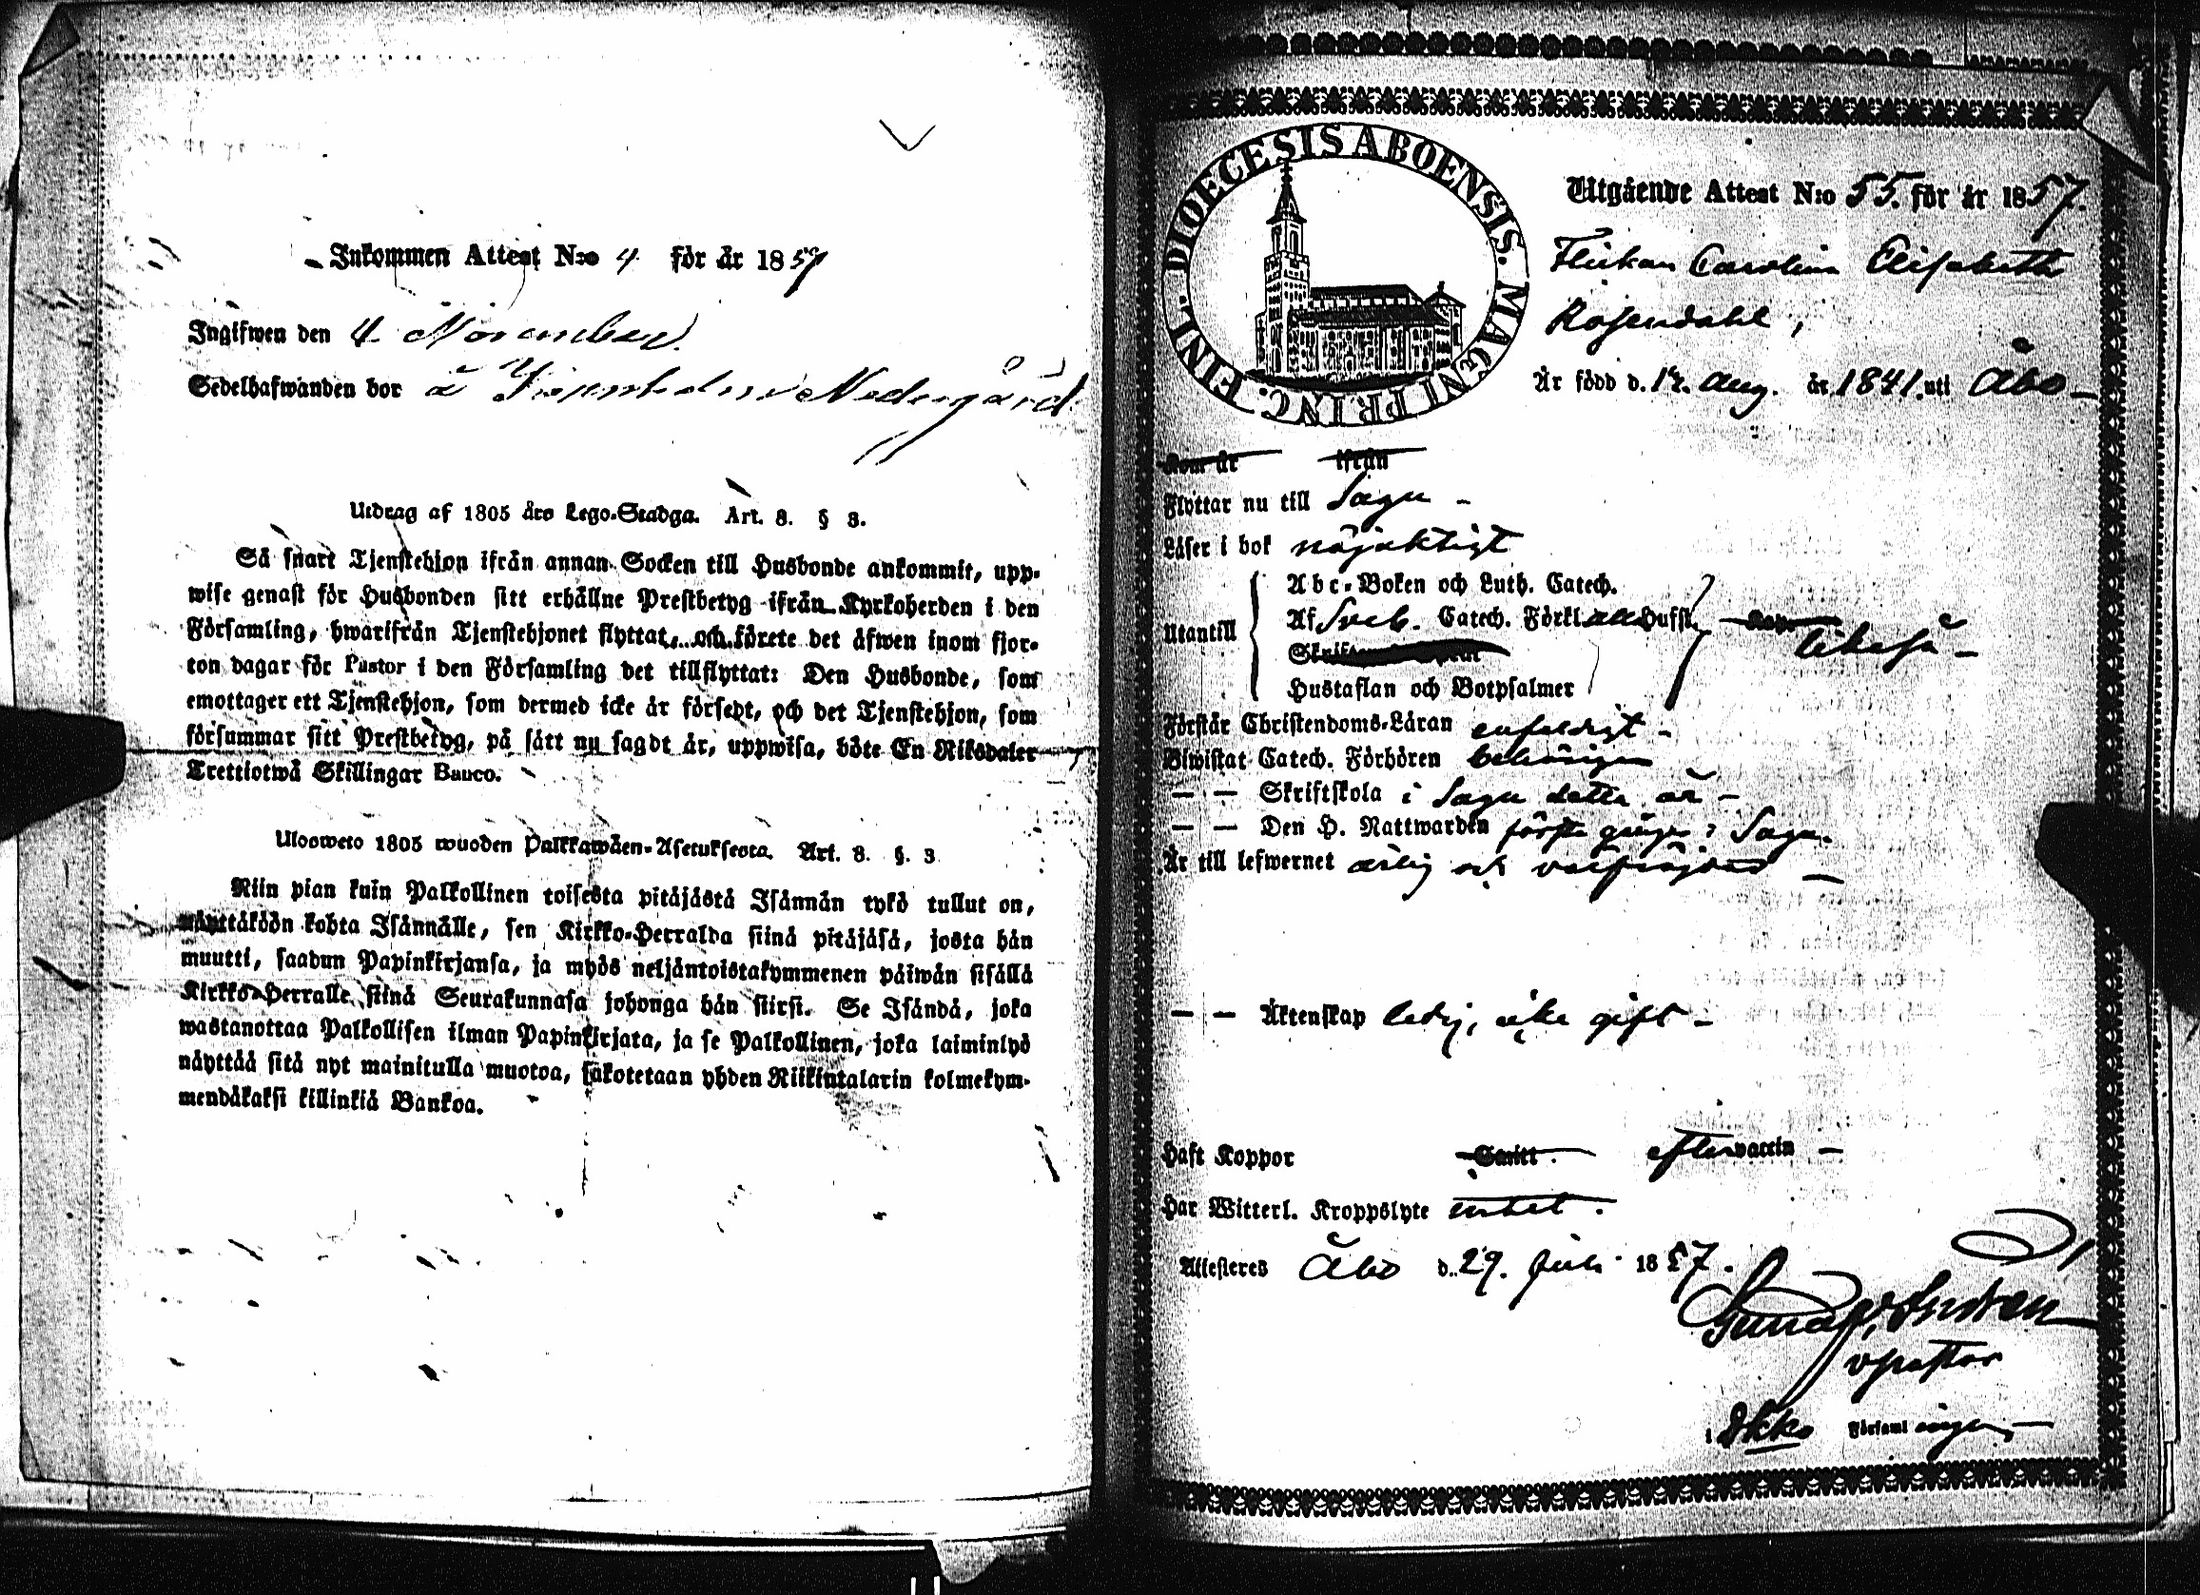 Inkommen Attest N:o 4 för år 1857
Ingifwen den 4 November.
Sedelhafwanden bor å Nedergård
Utdrag af 1805 års Lego-Stadga. Art. 8. § 3.
Så snart Tjenstehjon ifrån annan Socken till Husbonde ankommit, upp-
wise genast för Husbonden sitt erhållne Prestbetyg ifrån Kyrkoherden i den
Församling, hwarifrån Tjenstehjonet flyttat, och förete det äfwen inom fjor-
ton dagar för Pastor i den Församling det tillflyttat: Den Husbonde, som
emottager ett Tjenstehjon, som dermed icke är försedt, och det Tjenstehjon, som
försummar sitt Prestbetyg, på sätt nu sagdt är, uppwisa, böte En Riksdaler
Trettiotwå Skillingar Banco.
Ulosweto 1805 wuoden Palkkawäen-Asetuksesta. Art. 8. §. 3
Niin pian kuin Palkollinen toisesta pitäjästä Isännän tykö tullut on,
näyttäköön kohta Isännälle, sen Kirkko-Herralda siinä pitäjäsä, josta hän
muutti, saadun Papinkirjansa, ja myös neljäntoistakymmenen päiwän sisällä
Kirkko-Herralle siinä Seurakunnasa johonga hän siirsi. Se Isändä, joka
wastanottaa Palkollisen ilman Papinkirjata, ja se Palkollinen, joka laiminlyö
näyttää sitä nyt mainitulla muotoa, sakotetaan yhden Riikintalarin kolmekym-
mendäkaksi killinkiä Bankoa.
DIOECESIS ABOENSIS. MAGNI PRINC. FINL.
Utgående Attest N:o 55. för år 1857.
Flickan Carolina Elisabeth
Rosendahl,
Är född d. 12. Aug. år 1841. uti Åbo
Kom år ifrån
Flyttar nu till Sagu
Läser i bok nöjaktigt
Utantill
Abc-Boken och Luth. Catech.
Af Sveb. Catech. Förkl. Hufst.
Hustaflan och Botpsalmer
likaså
Förstår Christendoms-Läran enfaldigt
Biwistat Catech. Förhören behörigen
— — Skriftskola i Sagu detta år
— — Den H. Nattwarden första gången i Sagu.
Är till lefwernet ärlig och välfrejdad
— — Äktenskap ledig, icke gift
Haft Koppor Smitt. efter vaccin
Har Witterl. Kroppslyte intet.
Attesteras Åbo d. 29. Juli 1857.
v pastor
i församlingen